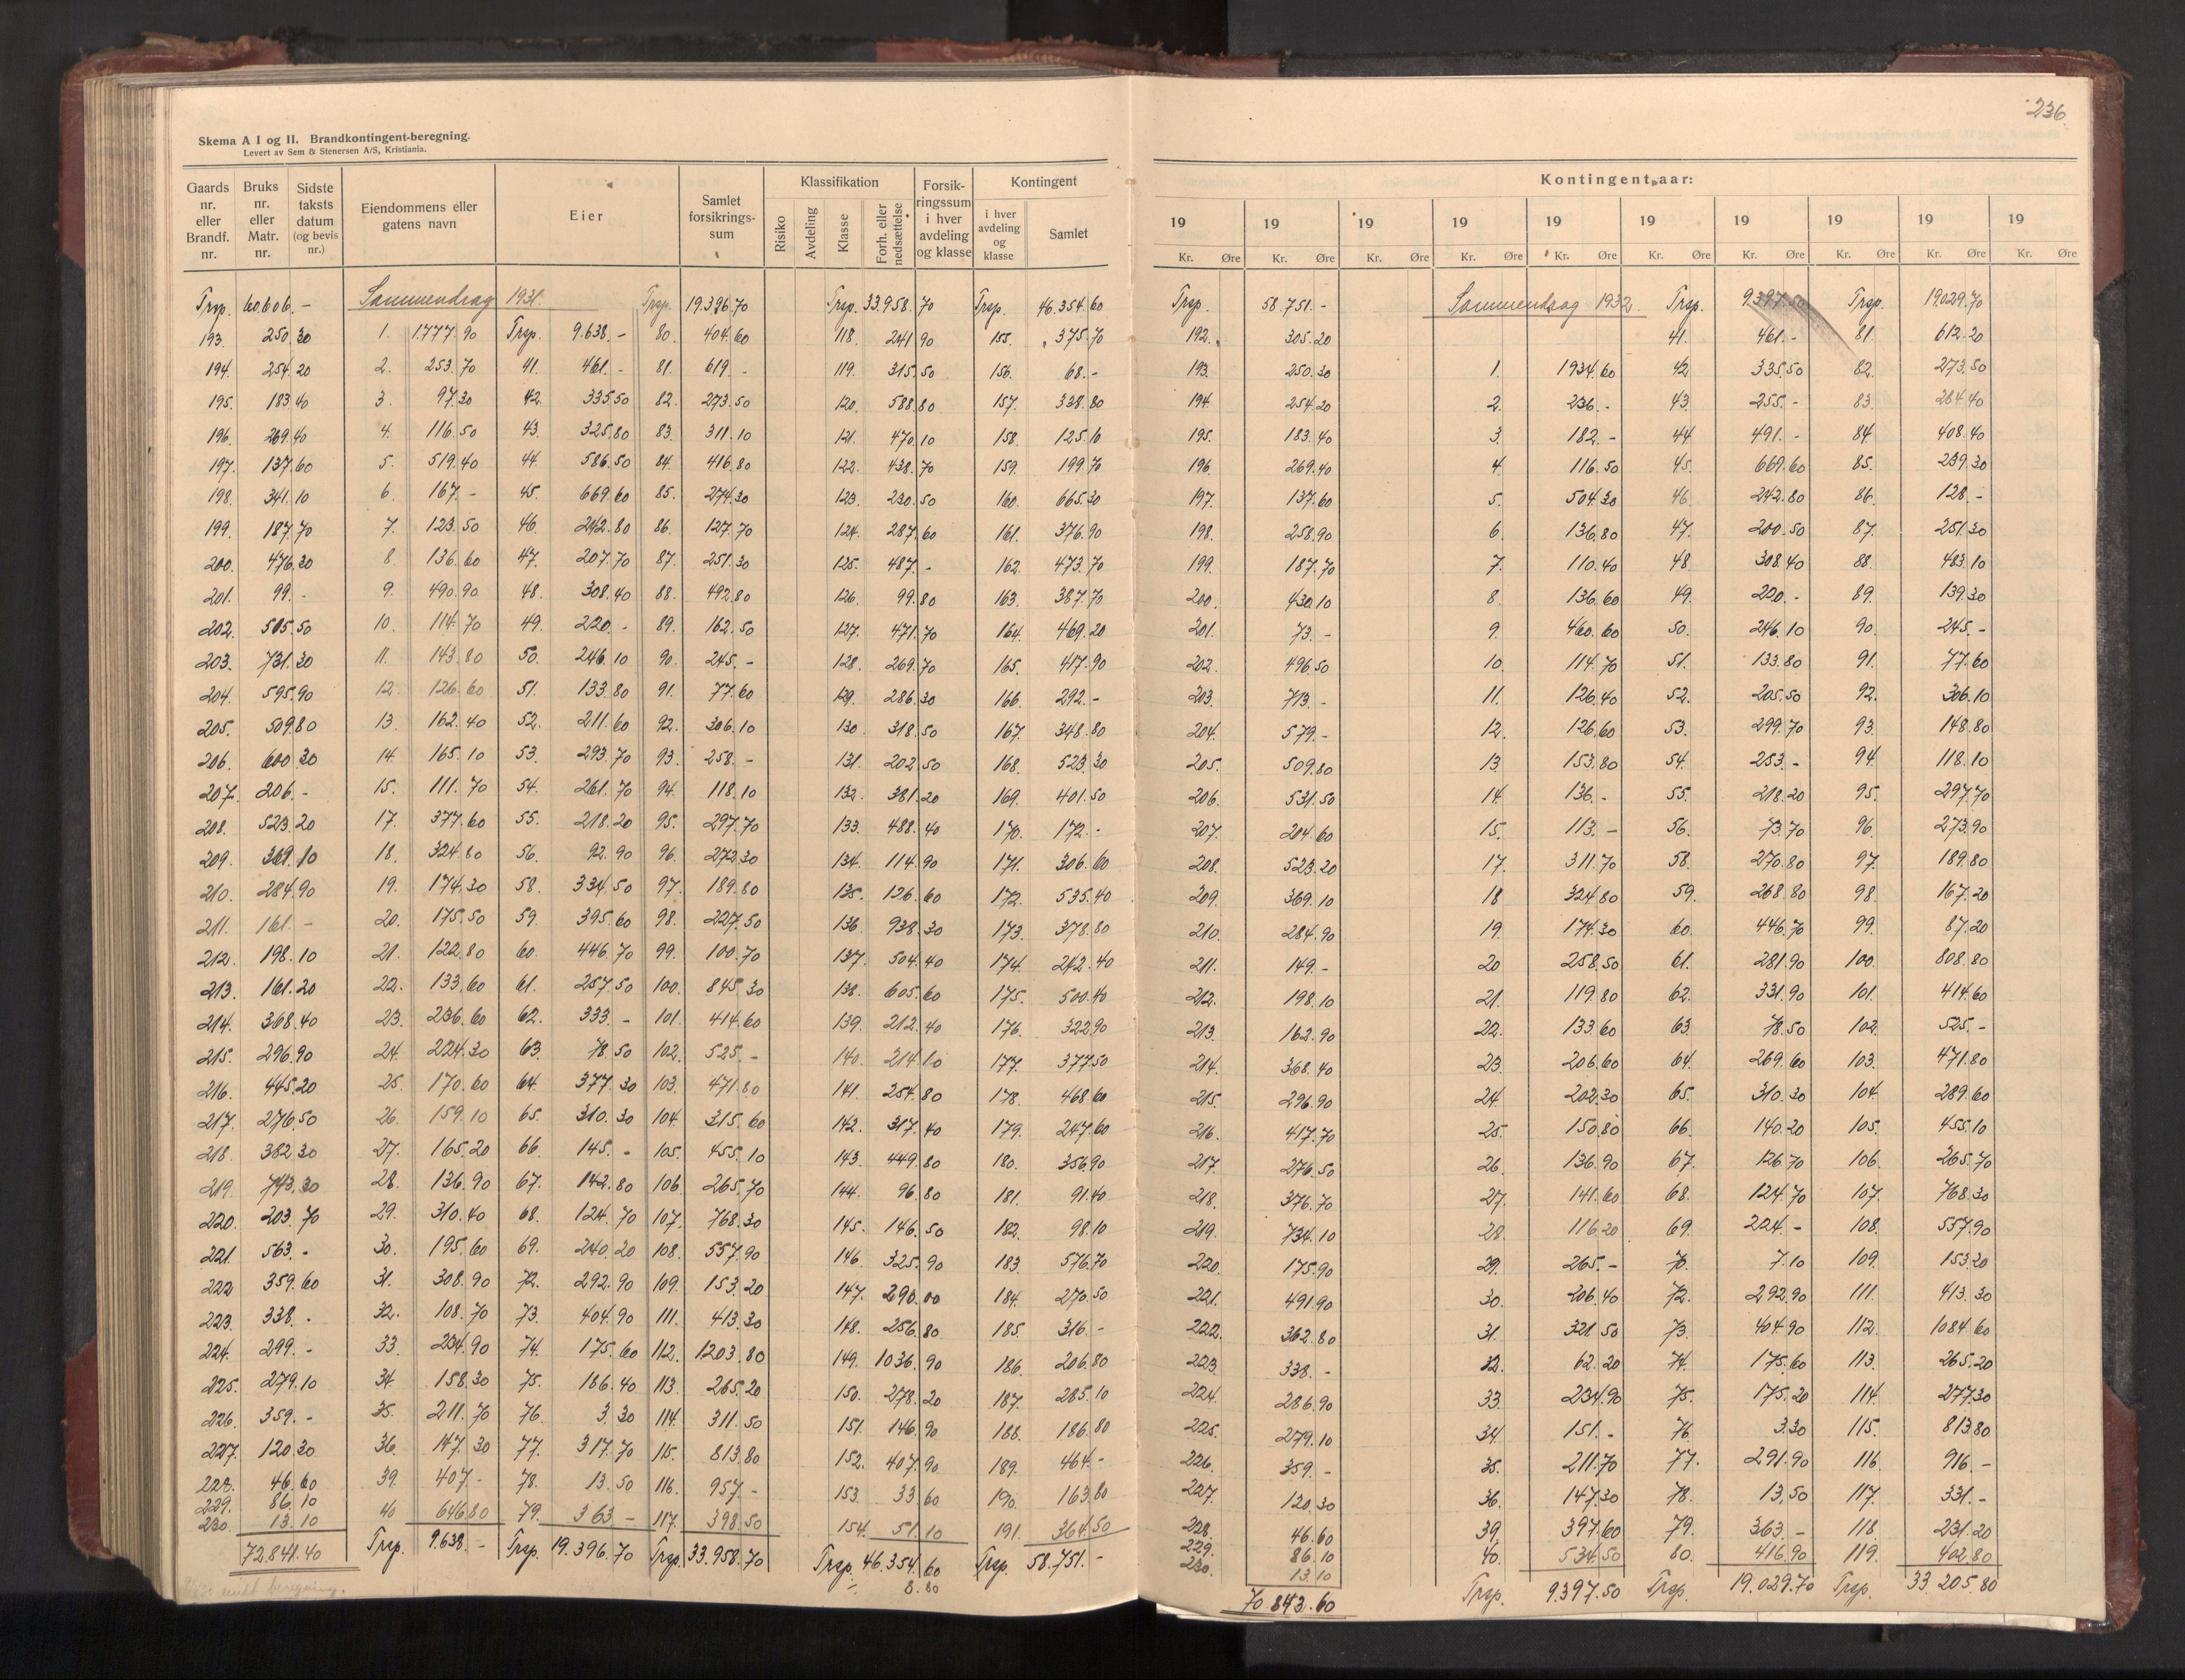 236
Skema A I og II. Brandkontingent-beregning.
Levert av Sem & Stenersen A/S, Kristiania.
Gaards nr. eller Brandf. nr. Bruks nr. eller Matr. nr. Sidste taksts datum (og bevis nr.) Eiendommens eller gatens navn Eier Samlet forsikrings-sum Klassifikation Risiko Avdeling Klasse Forh. eller nedsættelse Forsik-ringssum i hver avdeling og klasse Kontingent i hver avdeling og klasse Samlet
Trsp. 60.606.- Sammendrag 1931. Trsp. 19.396.70 Trsp. 33.958.70 Trsp. 46.354.60
193. 250.30 1. 1.777.90 Trsp. 9.638.- 80. 404.60 118. 241.90 155. 375.70
194. 254.20 2. 253.70 41. 461.- 81. 619.- 119. 315.50 156. 68.-
195. 183.40 3. 97.30 42. 335.50 82. 273.50 120. 588.80 157. 328.80
196. 269.40 4. 116.50 43. 325.80 83. 311.10 121. 470.10 158. 125.10
197. 137.60 5. 519.40 44. 586.50 84. 416.80 122. 438.70 159. 199.70
198. 341.10 6. 167.- 45. 669.60 85. 274.30 123. 230.50 160. 665.30
199. 187.70 7. 123.50 46. 242.80 86. 127.70 124. 287.60 161. 376.90
200. 476.30 8. 136.60 47. 207.70 87. 251.30 125. 487.- 162. 473.70
201. 99.- 9. 490.90 48. 308.40 88. 492.80 126. 99.80 163. 387.70
202. 505.50 10. 114.70 49. 220.- 89. 162.50 127. 471.70 164. 469.20
203. 731.30 11. 143.80 50. 246.10 90. 245.- 128. 269.70 165. 417.90
204. 595.90 12. 126.60 51. 133.80 91. 77.60 129. 286.30 166. 292.-
205. 509.80 13. 162.40 52. 211.60 92. 306.10 130. 318.50 167. 348.80
206. 600.30 14. 165.10 53. 293.70 93. 258.- 131. 202.50 168. 523.30
207. 206.- 15. 111.70 54. 261.70 94. 118.10 132. 381.20 169. 401.50
208. 523.20 17. 377.60 55. 218.20 95. 297.70 133. 488.40 170. 172.-
209. 369.10 18. 324.80 56. 92.90 96. 272.30 134. 114.90 171. 306.60
210. 284.90 19. 174.30 58. 334.50 97. 189.80 135. 126.60 172. 535.40
211. 161.- 20. 175.50 59. 395.60 98. 227.50 136. 938.30 173. 378.80
212. 198.10 21. 122.80 60. 446.70 99. 100.70 137. 504.40 174. 242.40
213. 161.20 22. 133.60 61. 257.50 100. 845.30 138. 605.60 175. 500.40
214. 368.40 23. 236.60 62. 333.- 101. 414.60 139. 212.40 176. 322.90
215. 296.90 24. 224.30 63. 78.50 102. 525.- 140. 214.10 177. 377.50
216. 445.20 25. 170.60 64. 377.30 103. 471.80 141. 254.80 178. 468.60
217. 276.50 26. 159.10 65. 310.30 104. 315.60 142. 317.40 179. 247.60
218. 382.30 27. 165.20 66. 145.- 105. 455.10 143. 449.80 180. 356.90
219. 743.30 28. 136.90 67. 142.80 106. 265.70 144. 96.80 181. 91.40
220. 203.70 29. 310.40 68. 124.70 107. 768.30 145. 146.50 182. 98.10
221. 563.- 30. 195.60 69. 240.20 108. 557.90 146. 325.90 183. 576.70
222 359.60 31. 308.90 72. 292.90 109. 153.20 147. 290.00 184. 270.50
223. 338.- 32. 108.70 73. 404.90 111. 413.30 148. 256.80 185. 316.-
224. 299.- 33. 234.90 74. 175.60 112. 1203.80 149. 1036.90 186. 206.80
225. 279.10 34. 158.30 75. 186.40 113. 265.20 150. 278.20 187. 285.10
226. 359.- 35. 211.70 76. 3.30 114. 311.50 151. 146.90 188. 186.80
227. 120.30 36. 147.30 77. 317.70 115. 813.80 152. 407.90 189. 464.-
228. 46.60 39. 407.- 78. 13.50 116. 957.- 153. 33.60 190. 163.80
229. 86.10 40 646.80 79. 363.- 117. 398.50 154. 51.10 191. 364.50
230. 13.10
72.841.40 Trsp. 9.638.- Trsp. 19.396.70 Trsp. 33.958.70 Trsp. 46.354.60 Trsp. 58.751.-
8.80
beregning.
Kontingentaar:
19 19 19 19 19 19 19 19 19 19
Kr. Øre Kr. Øre Kr. Øre Kr. Øre Kr. Øre Kr. Øre Kr. Øre Kr. Øre Kr. Øre Kr. Øre
Trsp. 58.751.- Sammendrag 1932. Trsp. 9397.50 Trsp. 19.029.70
192. 305.20 41. 461.- 81. 612.20
193. 250.30 1. 1934.60 42 335.50 82. 273.50
194. 254.20 2. 236.- 43. 255.- 83. 284.40
195. 183.40 3. 182.- 44 491.- 84 408.40
196. 269.40 4. 116.50 45. 669.60 85. 239.30
197. 137.60 5. 504.30 46 242.80 86. 128.-
198. 258.90 6. 136.80 47. 200.50 87. 251.30
199. 187.70 7. 110.40 48 308.40 88. 483.10
200. 430.10 8. 136.60 49. 220.- 89. 139.30
201. 73.- 9. 460.60 50. 246.10 90. 245.-
202. 496.50 10. 114.70 51. 133.80 91. 77.60
203. 713.- 11. 126.40 52. 205.50 92. 306.10
204. 579.- 12. 126.60 53. 299.70 93. 148.80
205. 509.80 13. 153.80 54. 253.- 94. 118.10
206. 531.50 14. 136.- 55. 218.20 95. 297.70
207. 204.60 15. 113.- 56. 73.70 96. 273.90
208. 523.20 17. 311.70 58. 270.80 97. 189.80
209. 369.10 18 324.80 59. 268.80 98. 167.20
210. 284.90 19. 174.30 60. 446.70 99. 87.20
211. 149.- 20 258.50 61. 281.90 100. 808.80
212. 198.10 21. 119.80 62. 331.90 101. 414.60
213. 162.90 22. 133.60 63. 78.50 102. 525.-
214. 368.40 23. 206.60 64. 269.60 103. 471.80
215. 296.90 24. 202.30 65. 310.30 104. 289.60
216. 417.70 25. 150.80 66. 140.20 105. 455.10
217. 276.50 26. 136.90 67. 126.70 106. 265.70
218. 376.70 27. 141.60 68. 124.70 107. 768.30
219. 734.10 28. 116.20 69. 224.- 108. 557.90
220. 175.90 29. 265.- 70. 7.10 109. 153.20
221. 491.90 30. 206.40 72. 292.90 111. 413.30
222. 362.80 31. 321.50 73. 404.90 112. 1084.60
223. 338.- 32. 62.20 74. 175.60 113. 265.20
224. 286.90 33. 234.90 75. 175.20 114. 277.30
225. 279.10 34. 151.- 76. 3.30 115. 813.80
226. 359.- 35. 211.70 77. 291.90 116. 916.-
227. 120.30 36. 147.30 78. 13.50 117. 331.-
228. 46.60 39. 397.60 79. 363.- 118. 231.20
229. 86.10 40. 534.50 80. 416.90 119. 402.80
230. 13.10
70.843.60 Trsp. 9.397.50 Trsp. 19.029.70 Trsp. 33.205.80